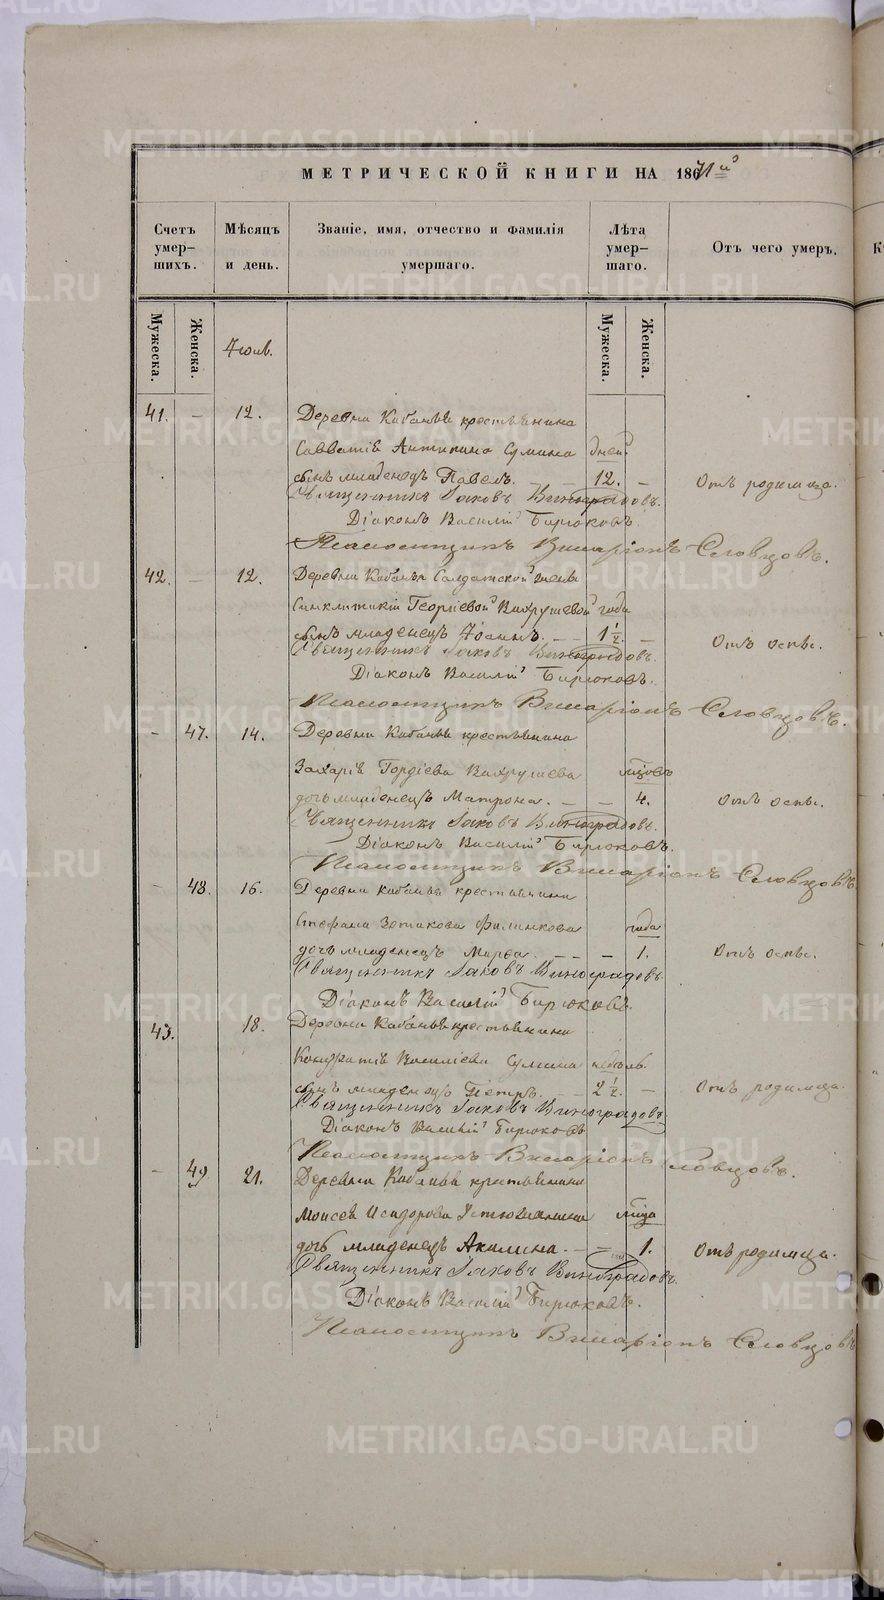 МЕТРИЧЕСКОЙ КНИГИ НА 1871й
Счетъ умер-шихъ.
Мѣсяцъ и день.
Званіе, имя, отчество и фамилія умершаго.
Лѣта умер-шаго.
Отъ чего умеръ.
Мужеска.
Женска.
Мужеска.
Женска.
41. - 12. Деревни Кабаньѣ крестьянина
Савватія Антипина Сумина дней
сынъ младенецъ Павелъ. - - 12. - Отъ родимца.
Священникъ Іаковъ Виноградовъ.
Діаконъ Василій Бирюковъ.
Псаломщикъ Виссаріонъ Словцовъ.
42. - 12. Деревни Кабаньѣ Солдатской жены
Синклитикіи Георгіевой Вахрушевой года
сынъ младенецъ - - 1 1/2. - Отъ оспы.
Священникъ Іаковъ Виноградовъ.
Діаконъ Василій Бирюковъ.
Псаломщикъ Виссаріонъ Словцовъ.
- 47. 14. Деревни Кабаньѣ крестьянина
Захарія Гордіева Вахрушева мѣсяцовъ
дочь младенецъ Матрона. - - 4. Отъ оспы.
Священникъ Іаковъ Виноградовъ.
Діаконъ Василій Бирюковъ.
Псаломщикъ Виссаріонъ Словцовъ.
- 48. 16. Деревни Кабаньѣ крестьянина
Стефана Зотикова Филинкова года
дочь младенецъ Марѳа. - - - 1. Отъ оспы.
Священникъ Іаковъ Виноградовъ.
Діаконъ Василій Бирюковъ.
43. 18. Деревни Кабаньѣ крестьянина
Кондратія Василіева Сумина недѣль.
сынъ младенецъ Петръ. - - 2 1/2. - Отъ родимца.
Священникъ Іаковъ Виноградовъ.
Діаконъ Василій Бирюковъ
Псаломщикъ Виссаріонъ Словцовъ.
- 49 21. Деревни Кабаньѣ крестьянина
Моисея Исидорова Устюжанина года
дочь младенецъ Акилина. - - 1. Отъ родимца.
Священникъ Іаковъ Виноградовъ.
Діаконъ Василій Бирюковъ.
Псаломщикъ Виссаріонъ Словцовъ
METRIKI.GASO-URAL.RU